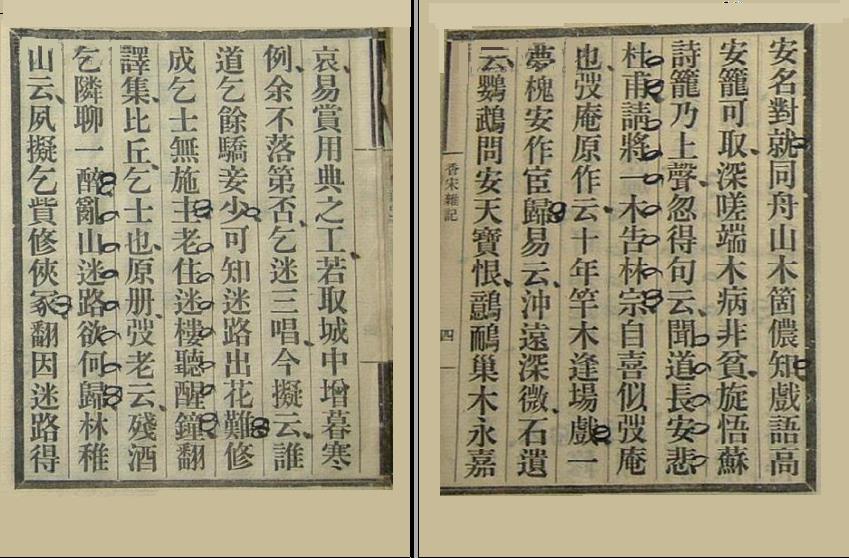 安名對就同舟山木箇儂知戲語高
安籠可取深嗟端木病非貧旋悟蘇
詩籠乃上聲忽得句云聞道長安悲
杜甫請將一木吿林宗自喜似弢庵
也弢庵原作云十年竿木逢場戲一
夢槐安作宦歸易云沖遠深微石遺
云鸚鵡問安天寶恨鷾鴯巢木永嘉
香宋雜記
四
哀易賞用典之工若取城中增暮寒
例余不落第否乞迷三唱今擬云誰
道乞餘驕妾少可知迷路出花難修
成乞士無施主老住迷樓聽醒鐘翻
譯集比丘乞士也原册弢老云殘酒
乞隣聊一醉亂山迷路欲何歸林稚
山云夙擬乞貲修俠冢翻因迷路得